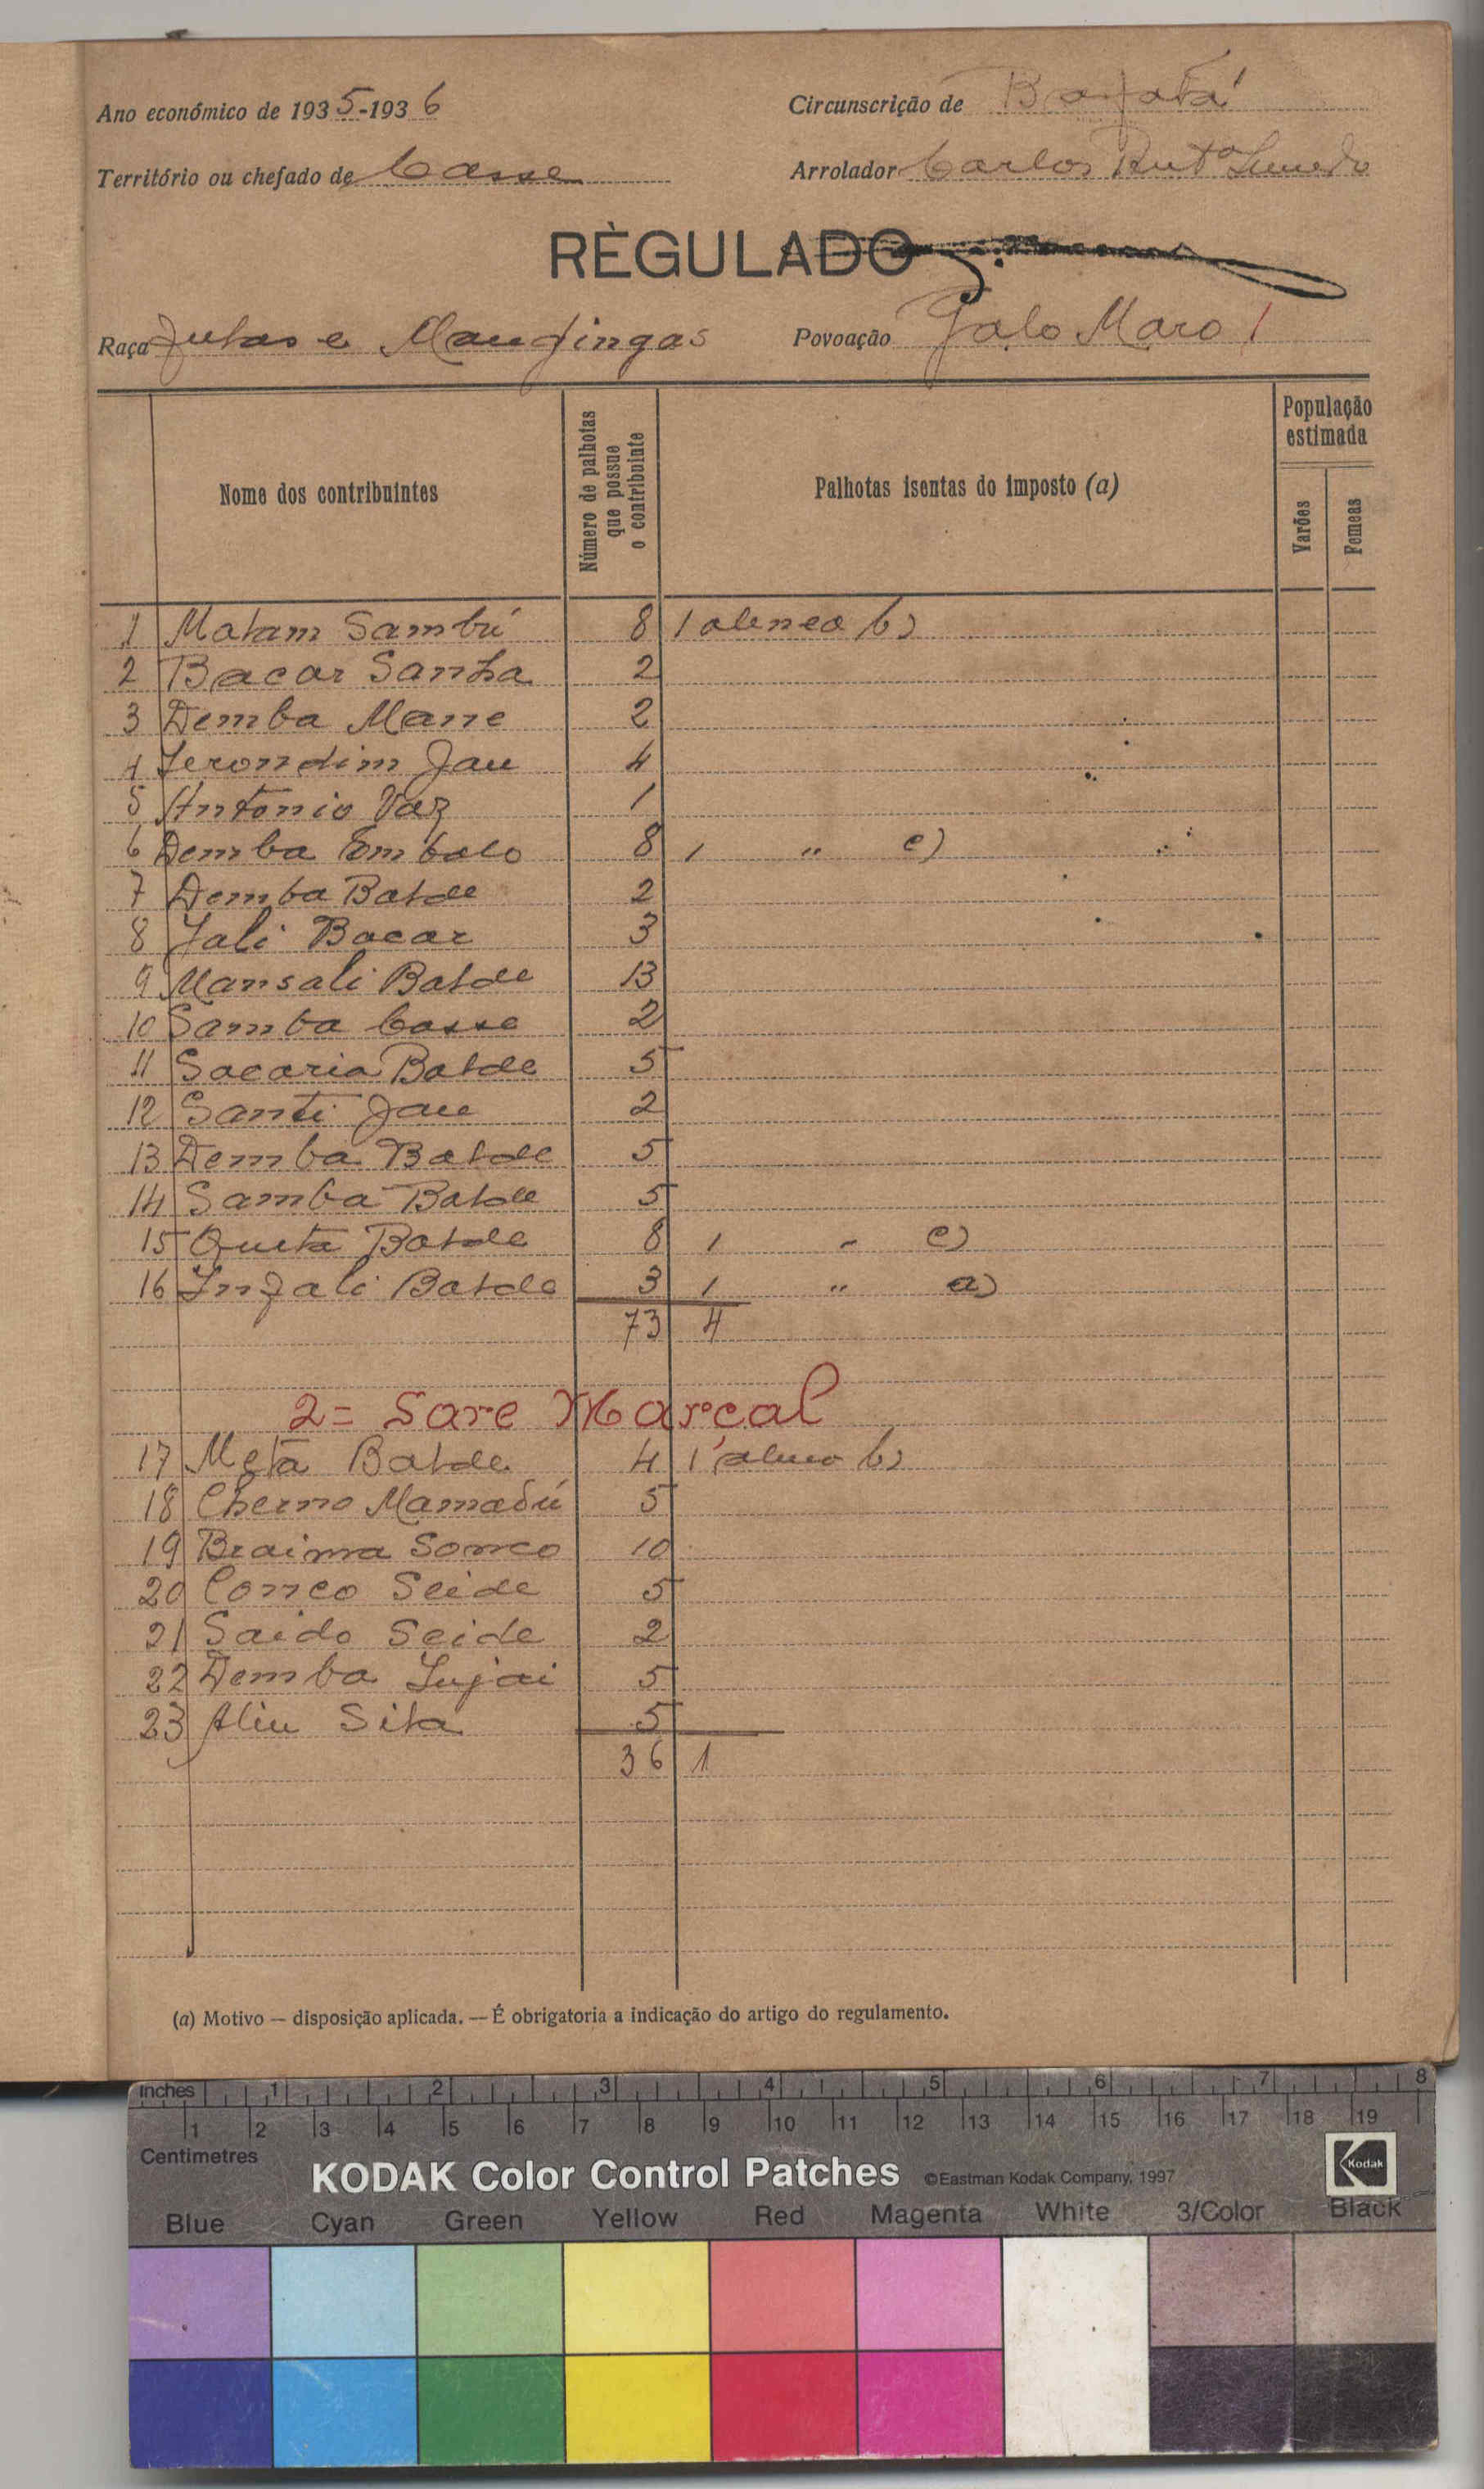 Ano económico de 1935-1936
Circunscrição de Bafatá
Território ou chefado de Casse
Arrolador Carlos
RÈGULADO
Raça Fulas e Mandingas
Povoação Galo Maro 1
Nome dos contribuintes
Número de palhotas que possue o contribuinte
Palhotas isentas do imposto (a)
População estimada
Varões
Femeas
1 Malam Sambú 8 1 alinea b)
2 Bacar Sanha 2
3 Demba Mane 2
4 Jerondim Jau 4
5 Antonio Vaz 1
6 Demba Embalo 8 1 " c)
7 Demba Balde 2
8 Jali Bacar 3
9 Mansali Balde 13
10 Samba Casse 2
11 Sacaria Balde 5
12 Santi Jau 2
13 Demba Balde 5
14 Samba Balde 5
15 Queta Balde 8 1 " c)
16 Injali Balde 3 1 " a)
73 4
2= Sare Marçal
17 Meta Balde 4 1 alinea b)
18 Cherno Mamadú 5
19 Braima Sonco 10
20 Conco Seide 5
21 Saido Seide 2
22 Demba Jujai 5
23 Aliu Sila 5
36 1
(a) Motivo — disposição aplicada. — É obrigatoria a indicação do artigo do regulamento.
inches 1 2 3 4 5 6 7 8
1 2 3 4 5 6 7 8 9 10 11 12 13 14 15 16 17 18 19
Centimetres
KODAK Color Control Patches ©Eastman Kodak Company, 1997 Kodak
Blue Cyan Green Yellow Red Magenta White 3/Color Black